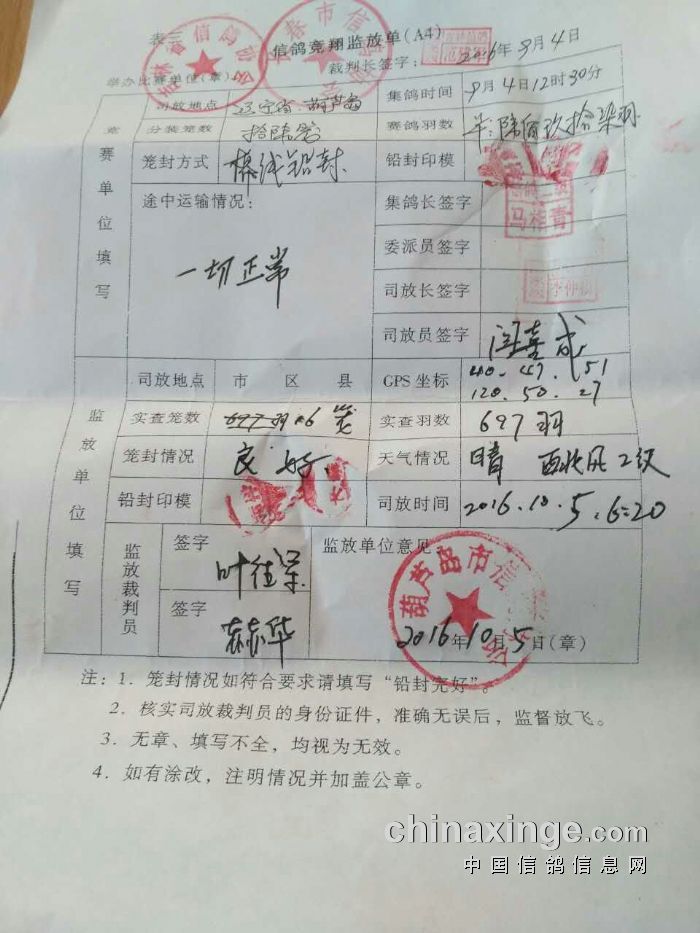 表三
信鸽竞翔监放单(A4)
裁判长签字:
2016年9月4日
举办比赛单位(章)
竞赛单位填写
司放地点 辽宁省 葫芦岛
集鸽时间 9月4日12时30分
分装笼数 拾陆笼
赛鸽羽数 陆佰玖拾柒羽
笼封方式 棉线铅封
铅封印模
途中运输情况:
一切正常
集鸽长签字
委派员签字
司放长签字
司放员签字 闫喜成
监放单位填写
司放地点 市 区 县
GPS坐标 40.47.51
120.50.27
实查笼数 697羽 16笼
实查羽数 697羽
笼封情况 良好
天气情况 晴 西北风2级
铅封印模
司放时间 2016.10.5.6:20
监放裁判员
签字
签字
监放单位意见:
葫芦岛市信
2016年10月5日(章)
注:1. 笼封情况如符合要求请填写“铅封完好”。
2. 核实司放裁判员的身份证件,准确无误后,监督放飞。
3. 无章、填写不全,均视为无效。
4. 如有涂改,注明情况并加盖公章。
chinaxinge.com
中国信鸽信息网